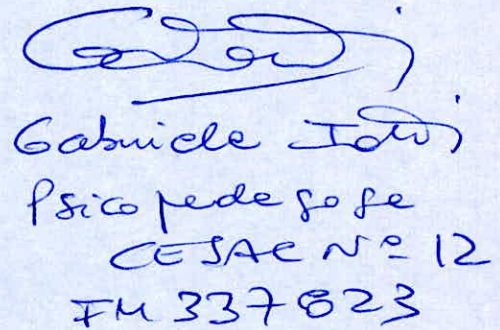 Gabriela
Psicopedagoga
CESAC Nº 12
FM 337823